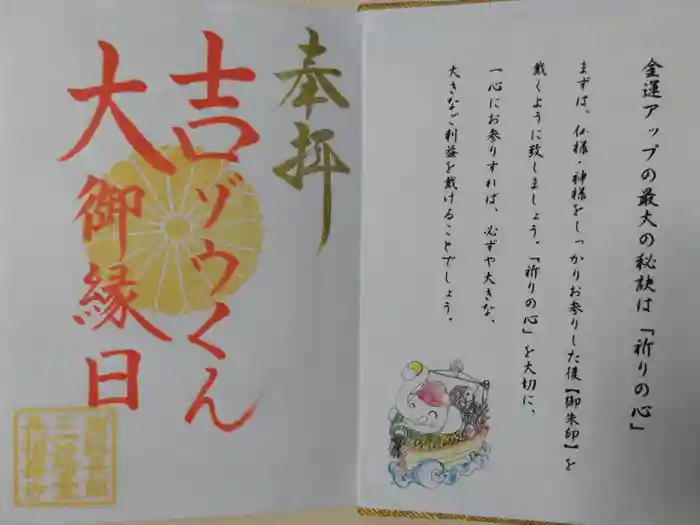 金運アップの最大の秘訣は「祈りの心」
まずは、仏様・神様をしっかりお参りした後【御朱印】を
戴くように致しましょう。「祈りの心」を大切に、
一心にお参りすれば、必ずや大きな、
大きなご利益を戴けることでしょう。
奉拝
吉ゾウくん
大御縁日